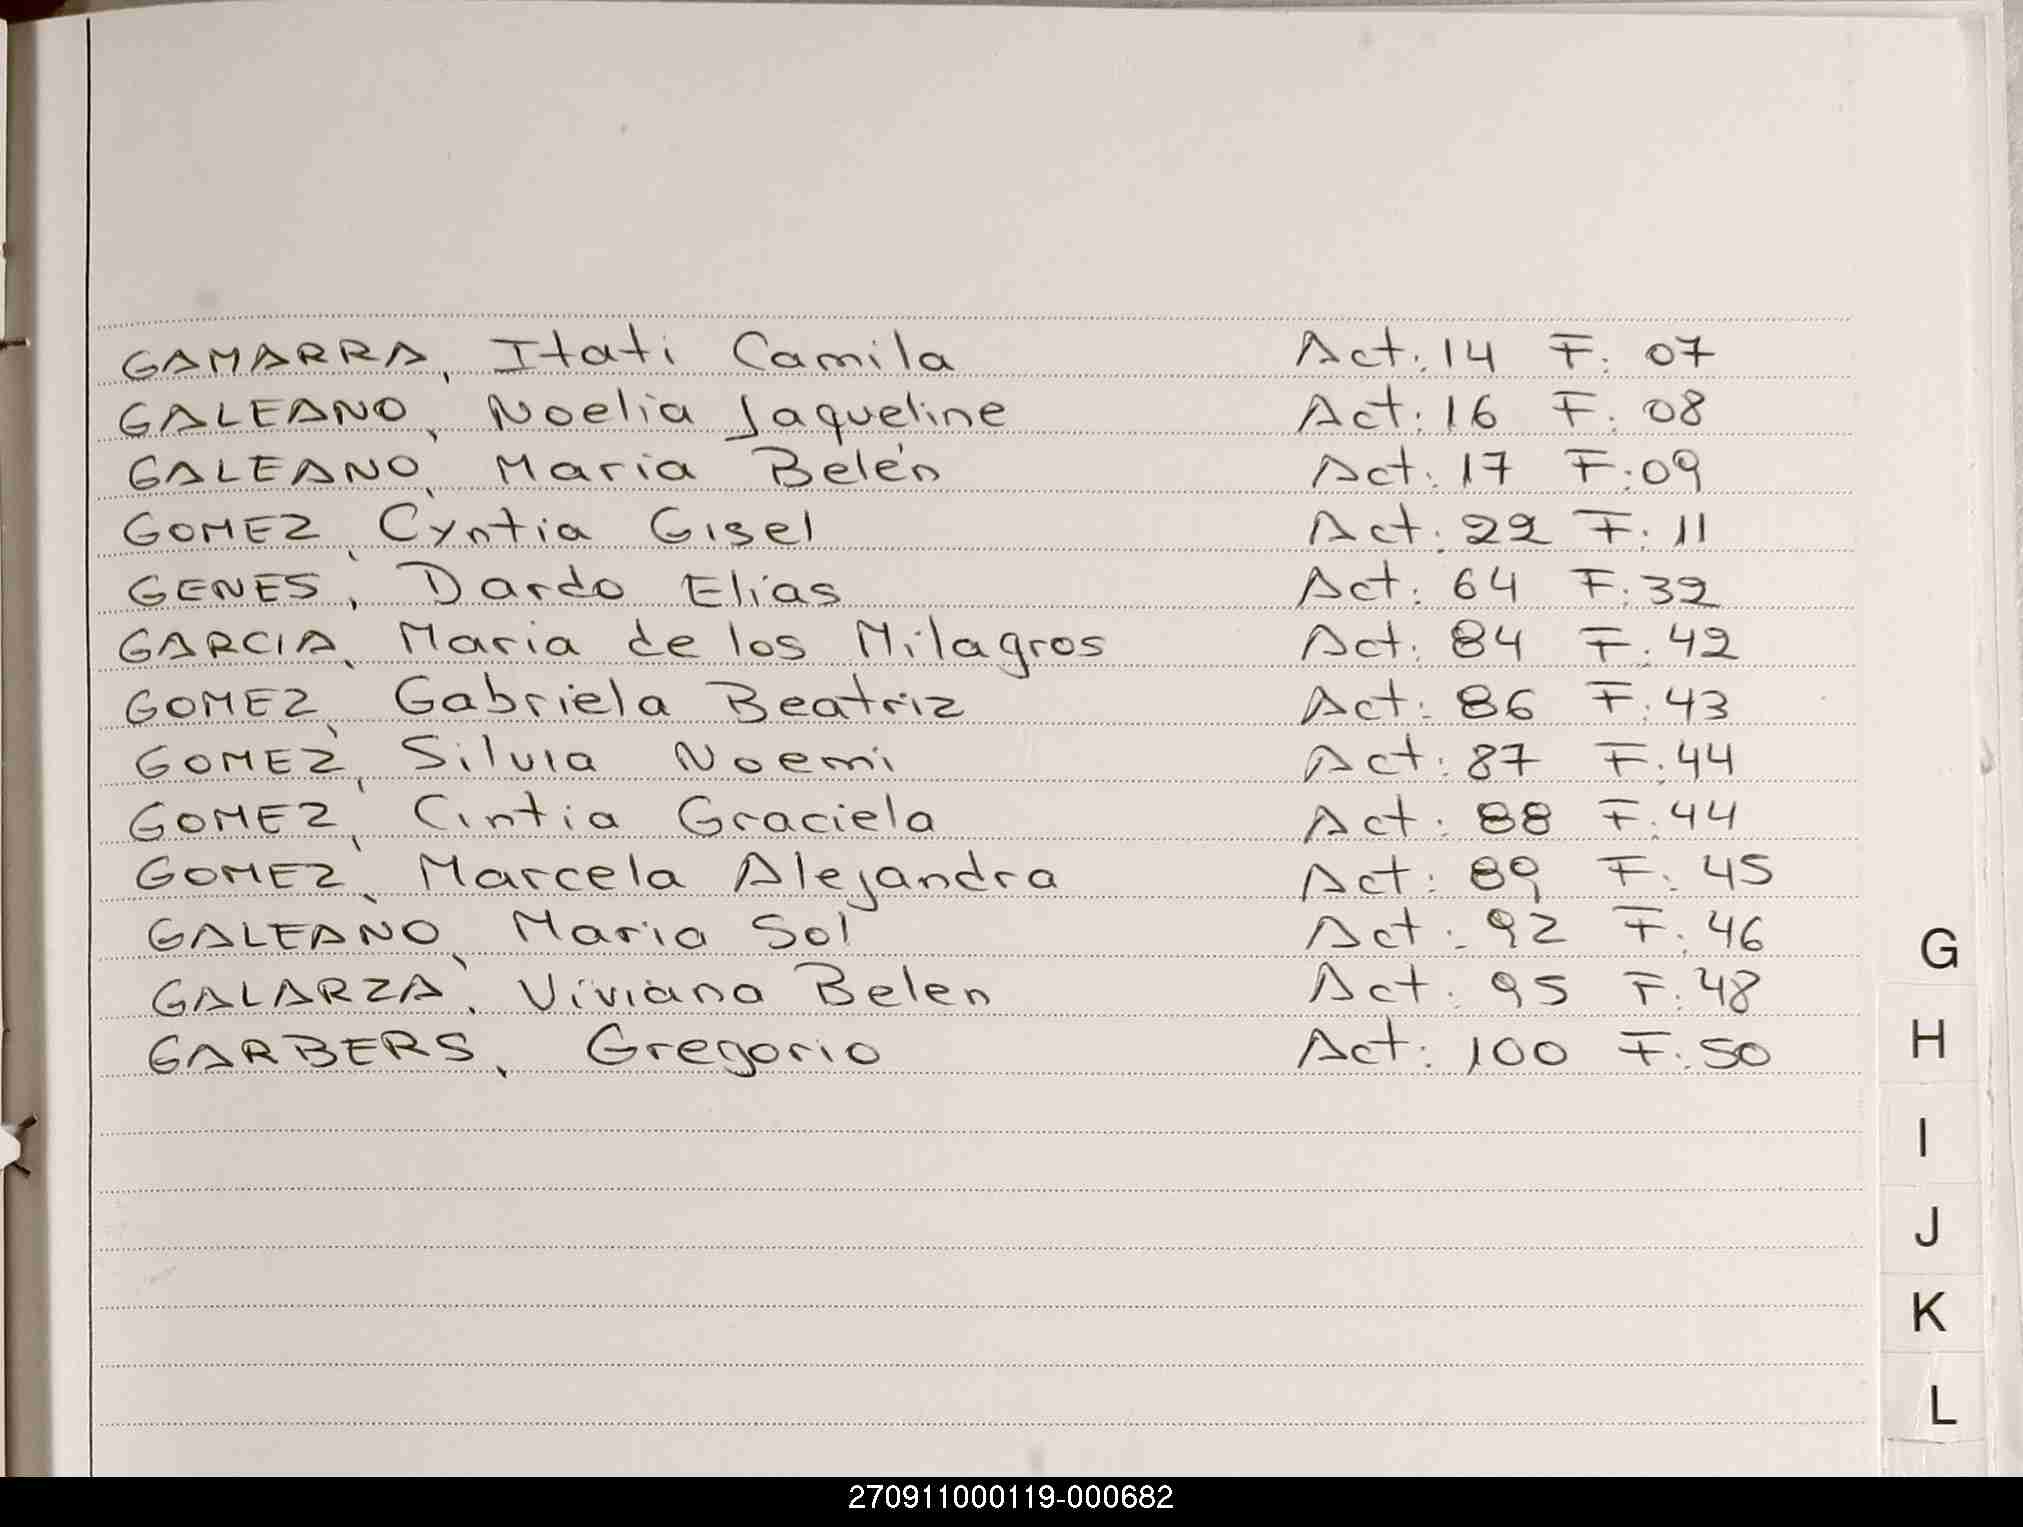 GAMARRA, Itati Camila Act: 14 F: 07
GALEANO, Noelia Jaqueline Act: 16 F: 08
GALEANO, Maria Belén Act: 17 F: 09
GOMEZ, Cyntia Gisel Act: 22 F: 11
GENES, Dardo Elias Act: 64 F: 32
GARCIA, Maria de los Milagros Act: 84 F: 42
GOMEZ, Gabriela Beatriz Act: 86 F: 43
GOMEZ, Silvia Noemi Act: 87 F: 44
GOMEZ, Cintia Graciela Act: 88 F: 44
GOMEZ, Marcela Alejandra Act: 89 F: 45
GALEANO, Maria Sol Act: 92 F: 46
GALARZA, Viviana Belen Act: 95 F: 48
GARBERS, Gregorio Act: 100 F: 50
G
H
I
J
K
L
270911000119-000682